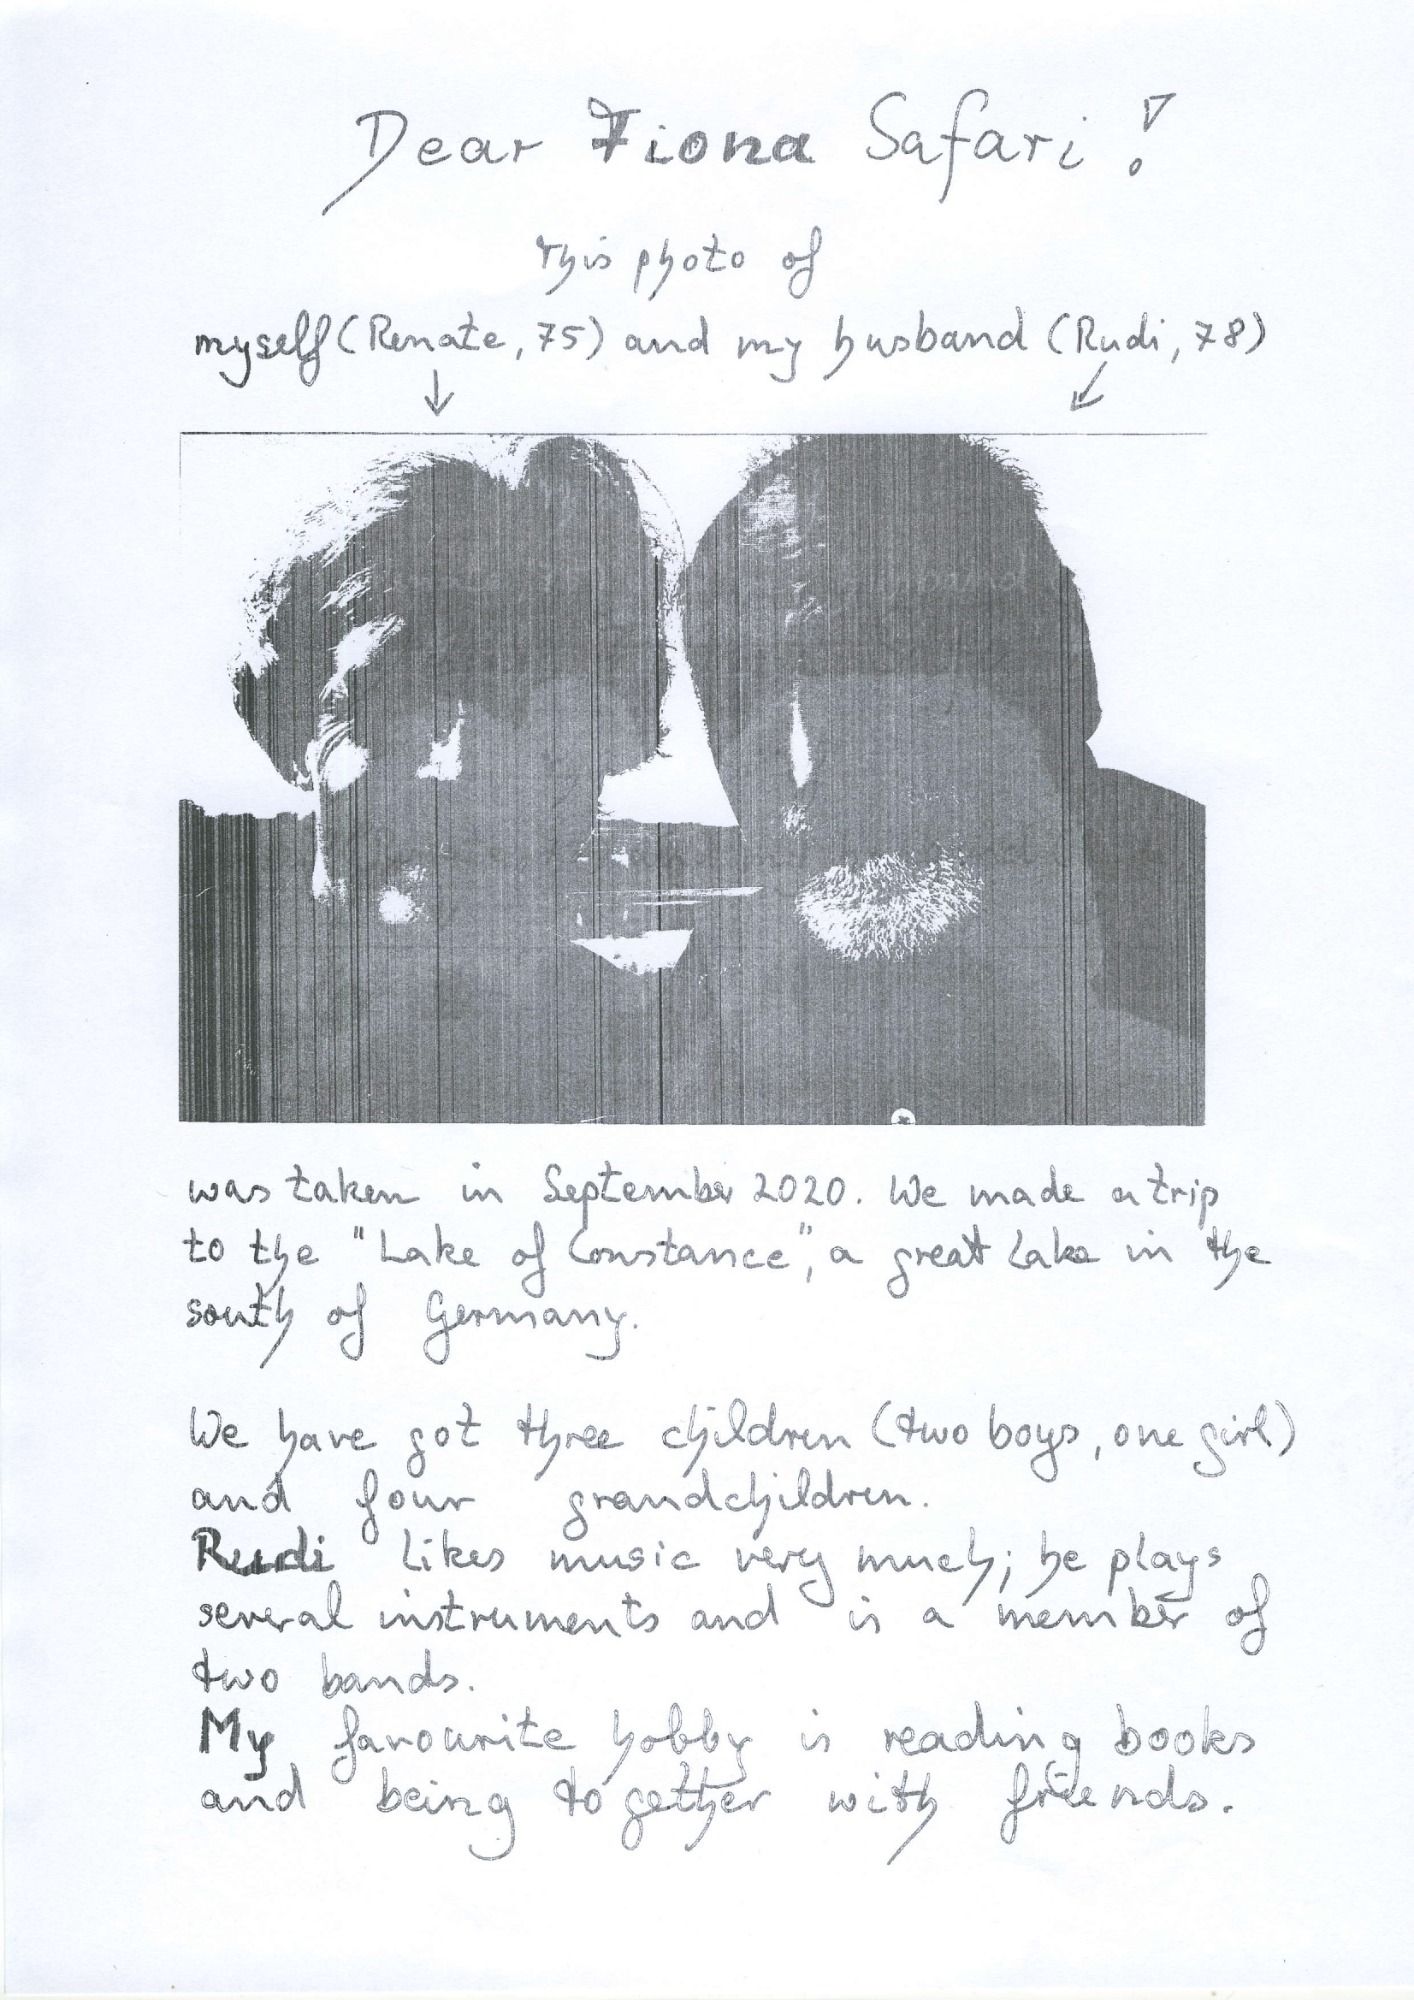 Dear Fiona Safari!
This photo of
myself (Renate, 75) and my husband (Rudi, 78)
was taken in September 2020. We made a trip
to the "Lake of Constance", a great lake in the
south of Germany.
We have got three children (two boys, one girl)
and four grandchildren.
Rudi likes music very much; he plays
several instruments and is a member of
two bands.
My favourite hobby is reading books
and being together with friends.